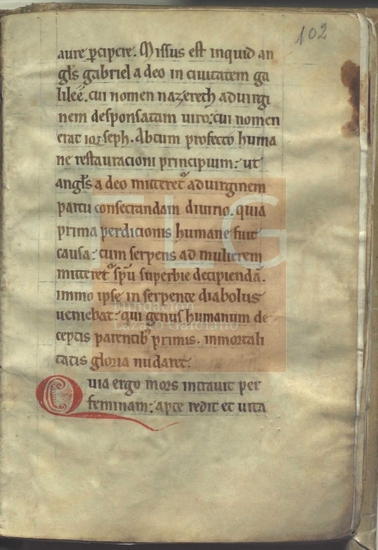 102
aure ꝑcipere. Missus est inquid an
gl̄s gabriel a deo in ciuitatem ga
lileę. cui nomen nazerech ad uirgi
nem desponsatam uiro: cui nomen
erat ioseph. Aptum profecto huma
ne restauracioni principium: ut
angl̄s a deo mitteret᷑ ad uirginem
partu consecrandam diuino. quia
prima perdicionis humane fuit
causa: cum serpens ad mulierem
mitteret᷑ sp̄u superbie decipiendā.
immo ipse in serpente diabolus
ueniebat: qui genus humanum de
ceptis parentibꝰ primis. inmortali
tatis gloria nudaret.
Quia ergo mors intrauit per
feminam: apte redit et uita
FLG
Fundación
Lázaro Galdiano